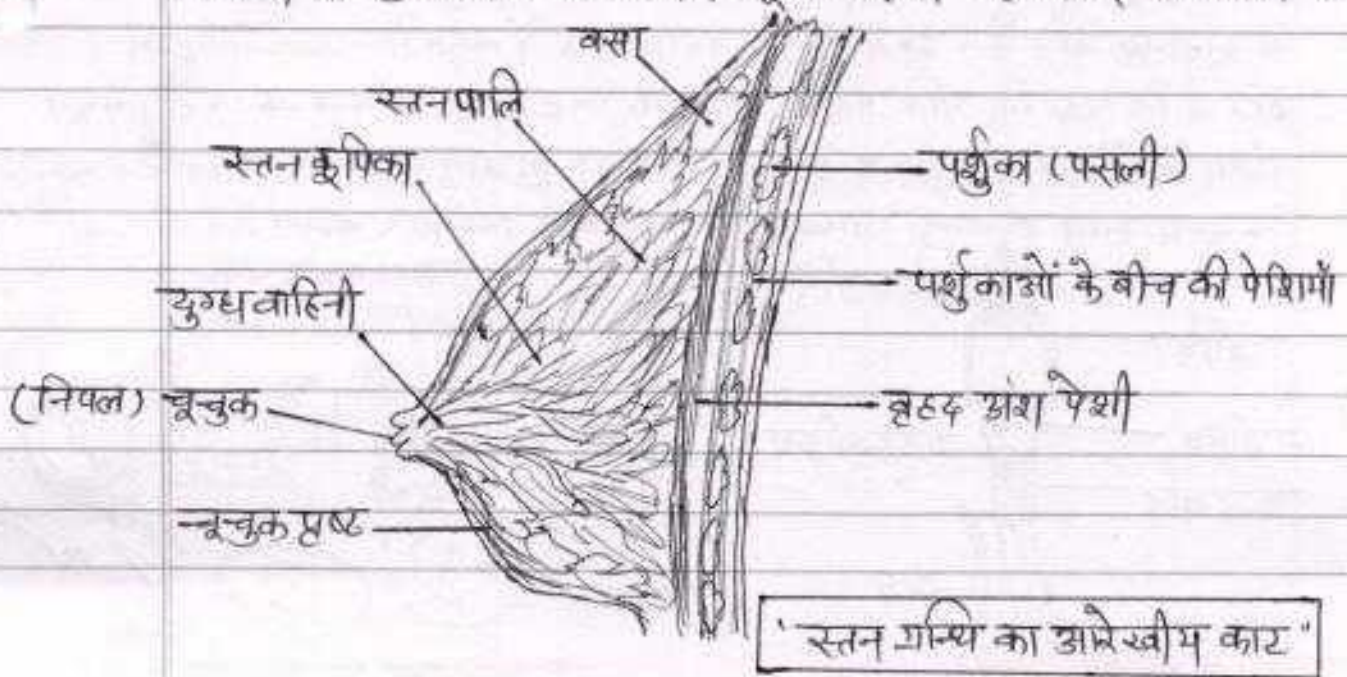 वसा
स्तन पालि
स्तन कूपिका
दुग्ध वाहिनी
(निपल) चूचुक
चूचुक पृष्ट
पर्शुका (पसली)
पर्शुकाओं के बीच की पेशियाँ
ब्रहद अंश पेशी
"स्तन ग्रन्थि का आरेखीय काट"